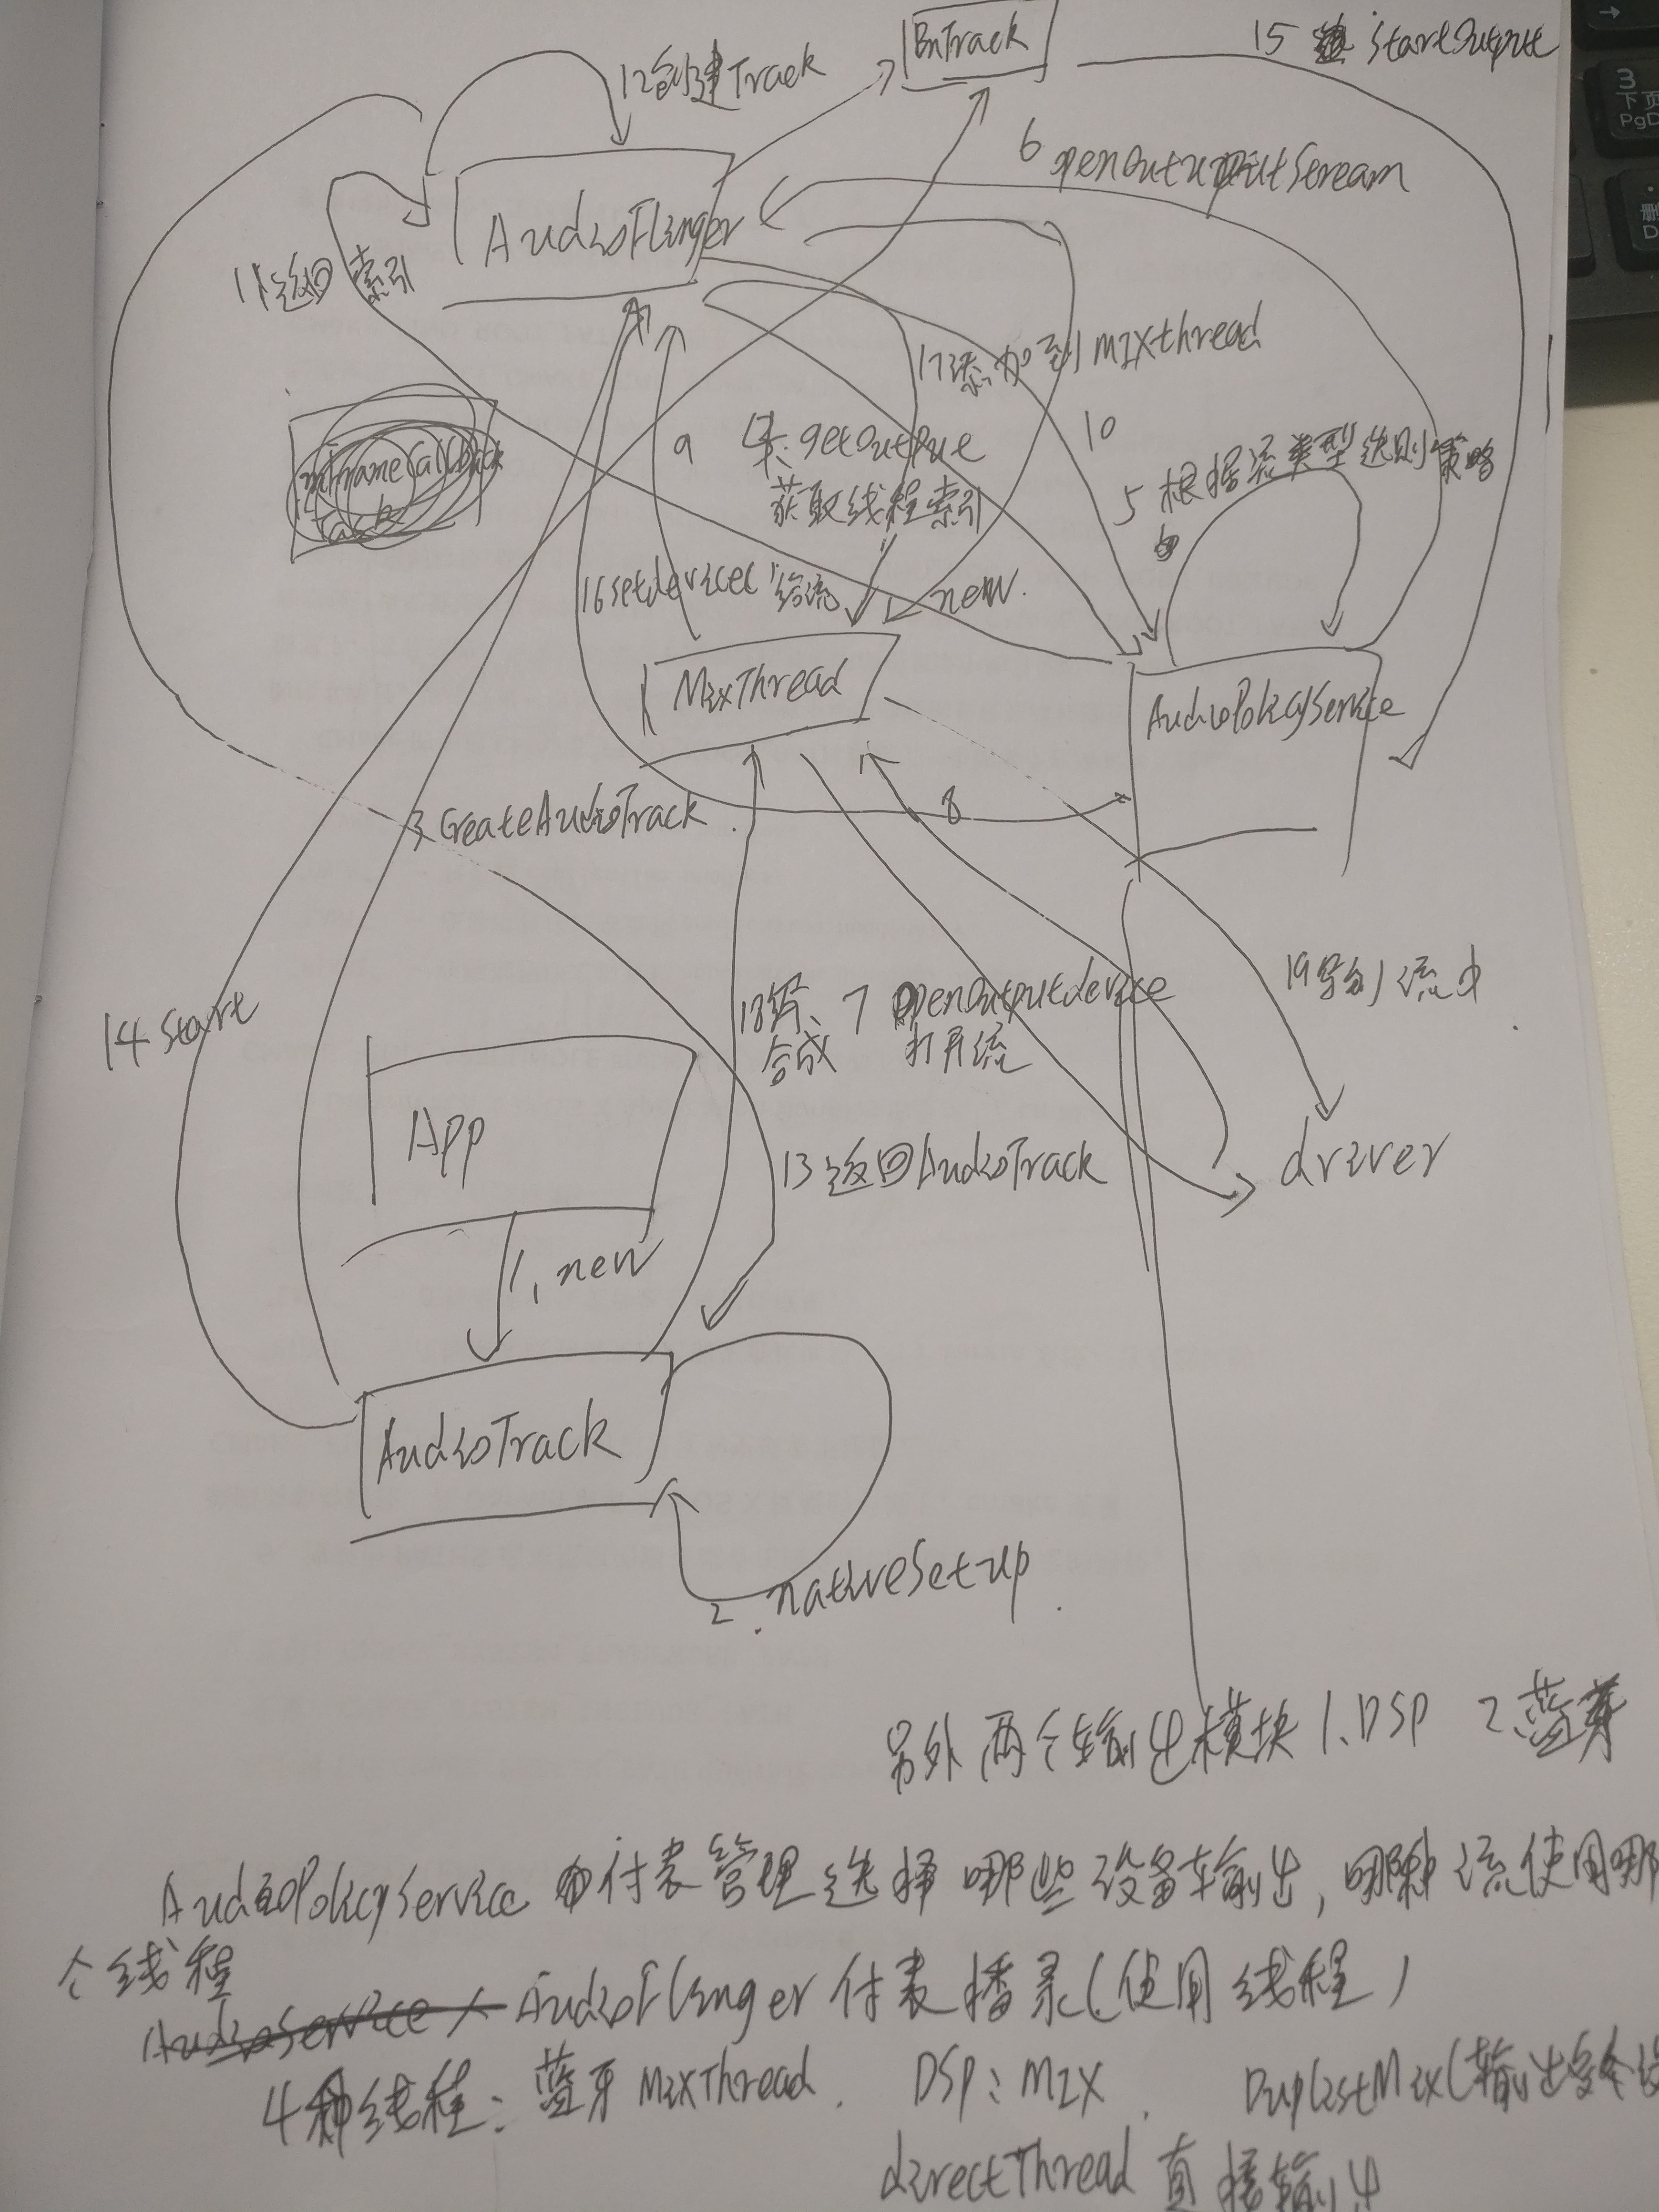 BnTrack
15 startOutput
12创建Track
6 openOutuputStream
AudioFlinger
11返回索引
17添加到mixthread
9
4.getOutput
获取线程索引
10
5根据流类型选则策略
16setdevice给流
new.
MixThread
AudioPolicyService
3 CreateAudioTrack
8
14 start
18写、
合成
7 openOutputdevice
打开流
19写到流中
App
13返回AudioTrack
driver
1.new
AudioTrack
2.nativeSetup
另外两个输出模块 1.DSP 2蓝芽
AudioPolicyService 付表管理选择哪些设备输出,哪种流使用哪
个线程
AudioService AudioFlinger付表播录(使用线程)
4种线程:蓝牙MixThread. DSP:Mix. DuplistMix(输出
directThread 直接输出
3
下页
PgD
删
D